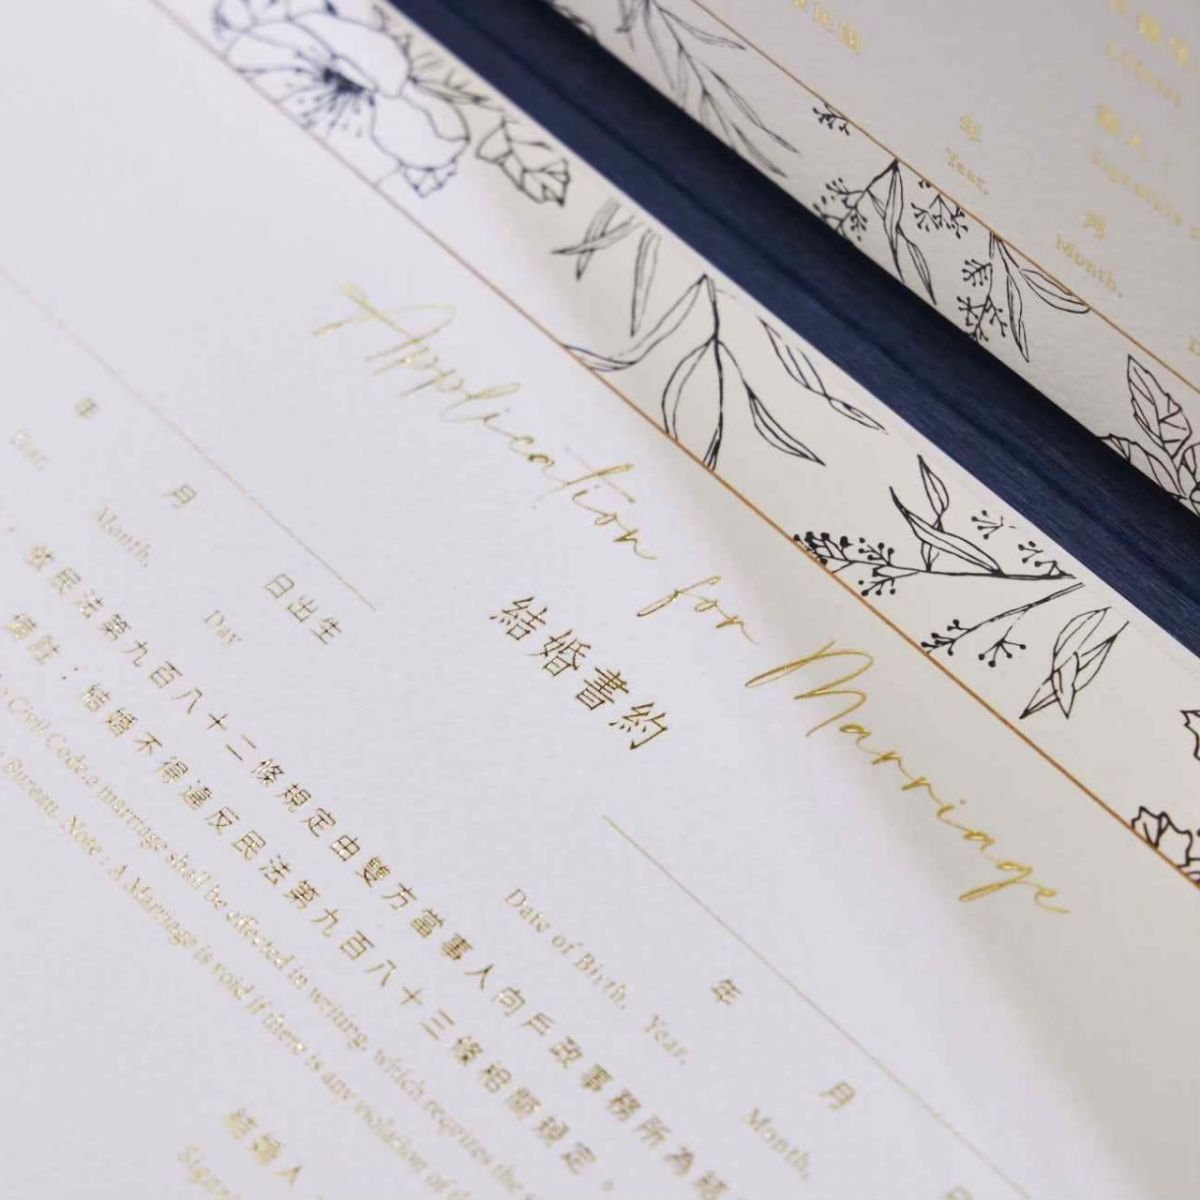 Application for Marriage
結婚書約
年
Year,
月
Month,
日出生
Day
Date of Birth,
年
Year,
月
Month,
依民法第九百八十二條規定由雙方當事人向戶政事務所為結
備註：結婚不得違反民法第九百八十三條相關規定。
Civil Code a marriage shall be effected in writing, which requires the
Bureau. Note : A Marriage is void if there is any violation of
結婚人
年
Year,
月
Month,